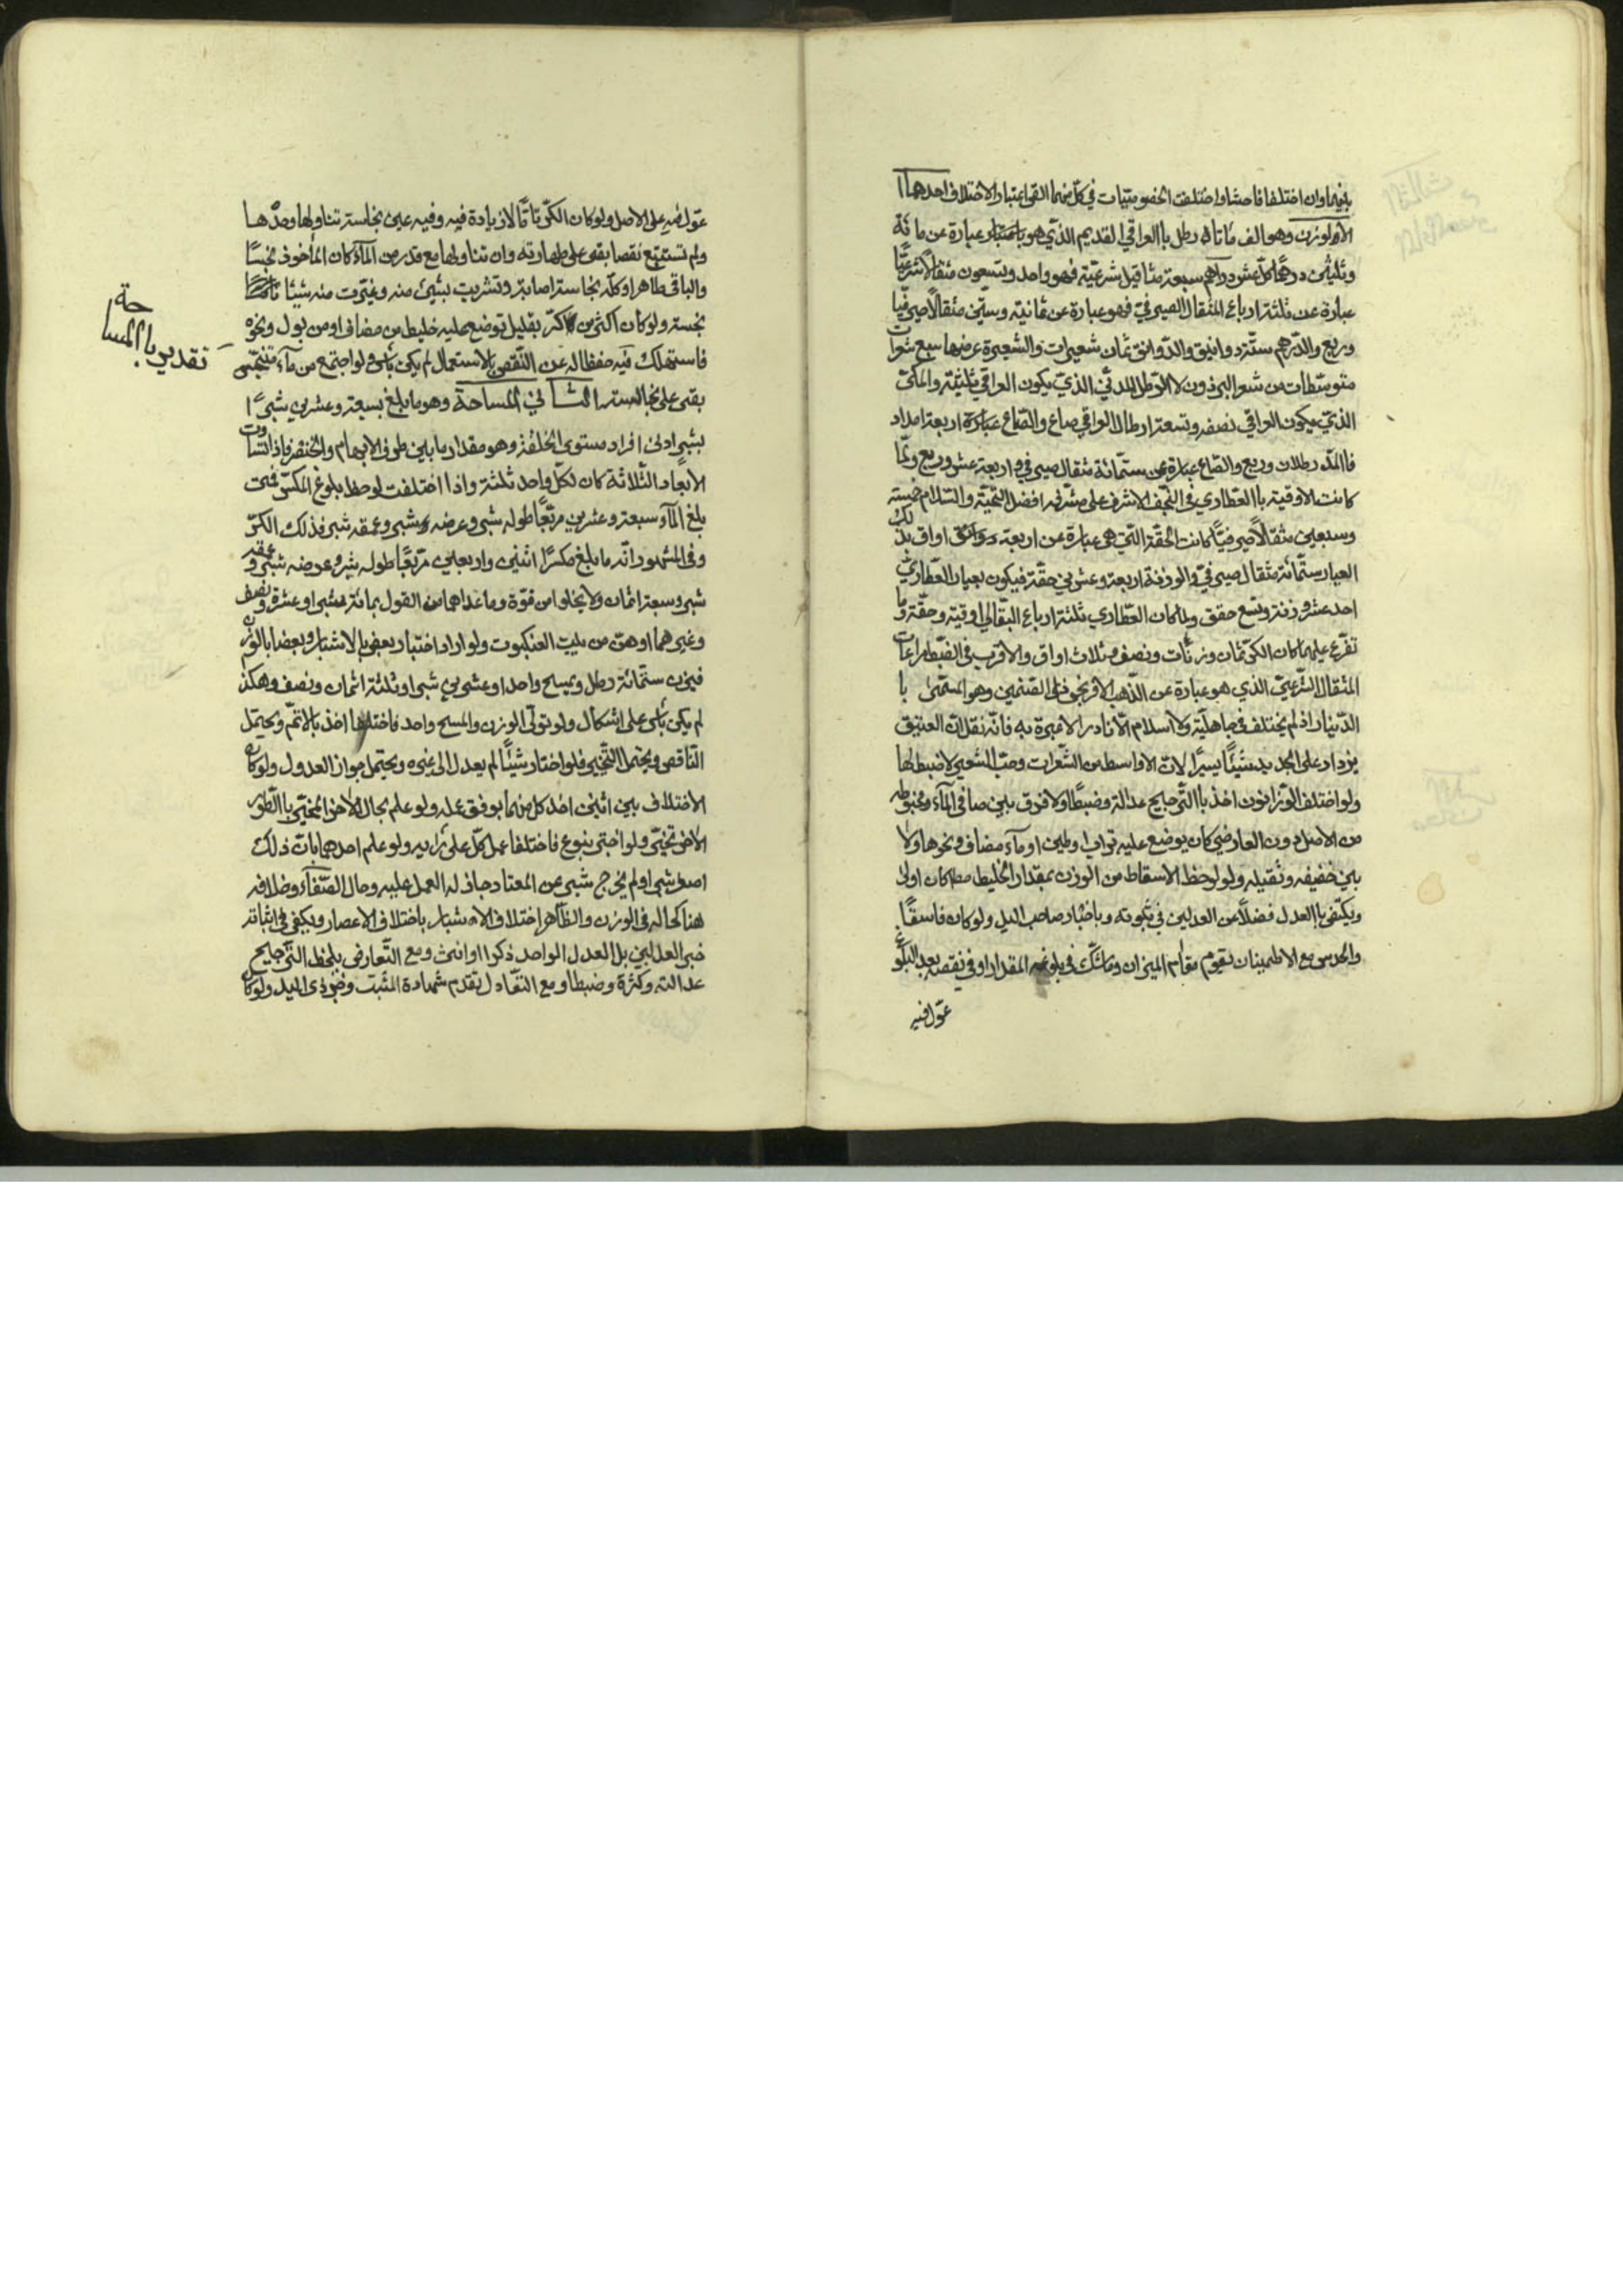 بينهما وان اختلفا فاحشا واختلفت الخصوصيات في كل منهما القي اعتبار الاختلاف احدها ا
لاول وزن وهو الف مأتا رطل باالعراقي القديم الذي هو باعتبار عبارة عن مائة
وثلثين درهما كل عشرة دراهم سبعة مثاقيل شرعيّة فهو واحد وتسعون مثقالا شرعيّا
عبارة عن ثلثة ارباع المثقال الصيرفيّ فهو عبارة عن ثمانية وستّين مثقالا صيرفيّا
وربع والدّرهم ستّة دوانيق والدّوانق ثمان شعيرات والشعيرة عرضها سبع شعرات
متوسّطات من شعر البرذون لا الرّطل المدنّي الذيّ يكون العراقي ثلثيّه والمكّي
الذيّ يكون العراقي نصفه وتسعة ارطال العراقي صاع والصّاع عبارة اربعة امداد
فاالمدّ رطلان وربع والصّاع عبارة عن ستّمائة مثقال صيرفي واربعة عشر وربع ولمّا
كانت الاوقية باالعطاري في النّجف الاشرف على مشرّفه افضل التّحيّة والسّلام خمسة
وسبعين مثقالاً صيرفيّاً كانت الحقّة الّتي هي عبارة عن اربعة اواق بذلك
العيار ستّمائة مثقال صيرفيّ والوزنة اربعة وعشرين حقّة فيكون بعيار العطّاريّ
احد عشر وزنة وتسع حقق ولما كان العطّاري ثلثة ارباع البقّالي اوقية وحقّة وما
تفرّع عليهما كان الكرّ ثمان وزنات ونصف وثلاث اواق والاقرب في الضّبط مراعات
المثقال الشّرعيّ الذي هو عبارة عن الذّهب الافرنجي ذي الصّنمين وهو المسمّى با
الدّينار اذ لم يختلف في جاهليّة ولا اسلام الّا نادرا لا عبرة به فانّه نقل انّ العتيق
يزداد على الجديد شيئاً يسيراً لانّ الاواسط من الشّعرات وحبّ الشّعير لا ضبط لها
ولو اختلف الوزانون اخذ باالتّرجيح عدالة وضبطاً ولا فرق بين صافي الماء ومخبوطه
من الاصل دون العارضي كان يوضع عليه تراب او طين او ماء مضاف ونحوها ولا
بين خفيفه وثقيله ولو لوحظ الاسقاط من الوزن بمقدار الخليط مط كان اولى
ويكتفى باالعدل فضلاً عن العدلين في ثبوته وباخبار صاحب اليد ولو كان فاسقًا
والحدس مع الاطمينان يقوم مقام الميزان وما شكّ في بلوغه المقدار او في نقصه بعد البلوغ
عوّل فيه
عوّل فيه على الاصل ولو كان الكرّ تامّا لا زيادة فيه وفيه عين نجاسة تناولها وحدّها
ولم تستتبع نقصا بقى على طهارته وان تناولها مع قدر من الماء كان المأخوذ نجسًا
والباقي طاهرا وكلّ نجاسة اصابته وتشربت بشيئ منه وغيّرت منه شيئا
نجسته ولو كان اكثر من كرّ بقليل توضع عليه خليط من مضاف او من بول ونحوه
فاستهلك فيه حفظا له عن النّقص بالاستعمال لم يكن باس ولو اجتمع من ماء متنجّس
بقى على نجاسته الثاني المساحة وهو ما بلغ سبعة وعشرين شبرًا
بشبر ادنى افراد مستوى الخلقة وهو مقدار ما بين طرفي الابهام والخنصر فاذا تساوت
الابعاد الثّلاثة كان لكلّ واحد ثلثة واذا اختلفت لوحظ بلوغ المكسّر فمتى
بلغ الماء سبعة وعشرين مربّعاً طوله شبر وعرضه شبر وعمقه شبر فذلك الكرّ
وفي المشهور انّه ما بلغ مكسّرا اثنين واربعين مربّعاً طوله شبر وعرضه شبر وعمقه
شبر وسبعة اثمان ولا يخلوا من قوّة وما عداهما من القول بمائة شبر او عشرة ونصف
وغيرهما اوهن من بيت العنكبوت ولو اراد اختبار بعض بالاشبار وبعضا بالوزن
فيزن ستّمائة رطل ويمسح واحدا وعشرين شبرا وثلثة اثمان ونصف وهكذ
لم يكن باس على اشكال ولو تولّى الوزن والمسح واحد فاختلفا اخذ بالاتمّ ويحتمل
النّاقص ويحتمل التّخيير فلو اختار شيئاً لم يعدل الى غيره ويحتمل جواز العدول ولو كان
الاختلاف بين اثنين اخذ كل منهما بوفق عمله ولو علم بحال الاخر تخيّر باالطّور
الاخر تخيّر ولو اختبر بنوع فاختلفا عمل كلّ على رايه ولو علم احدهما بانّ ذلك
اصغر شبرا ولم يخرج شبر عن المعتاد جاز له العمل عليه وحال الصّفاء وخلافه
هنا كحاله في الوزن والظّاهر اختلاف الاشبار باختلاف الاعصار ويكفي في اثباته
خبر العدلين بل العدل الواحد ذكرا او انثى ومع التّعارض يلحظ التّرجيح
عدالة وكثرة وضبطا ومع التعّادل تقدم شهادة المثبت وخبر ذي اليد ولو كان
تقدير باالمساحة